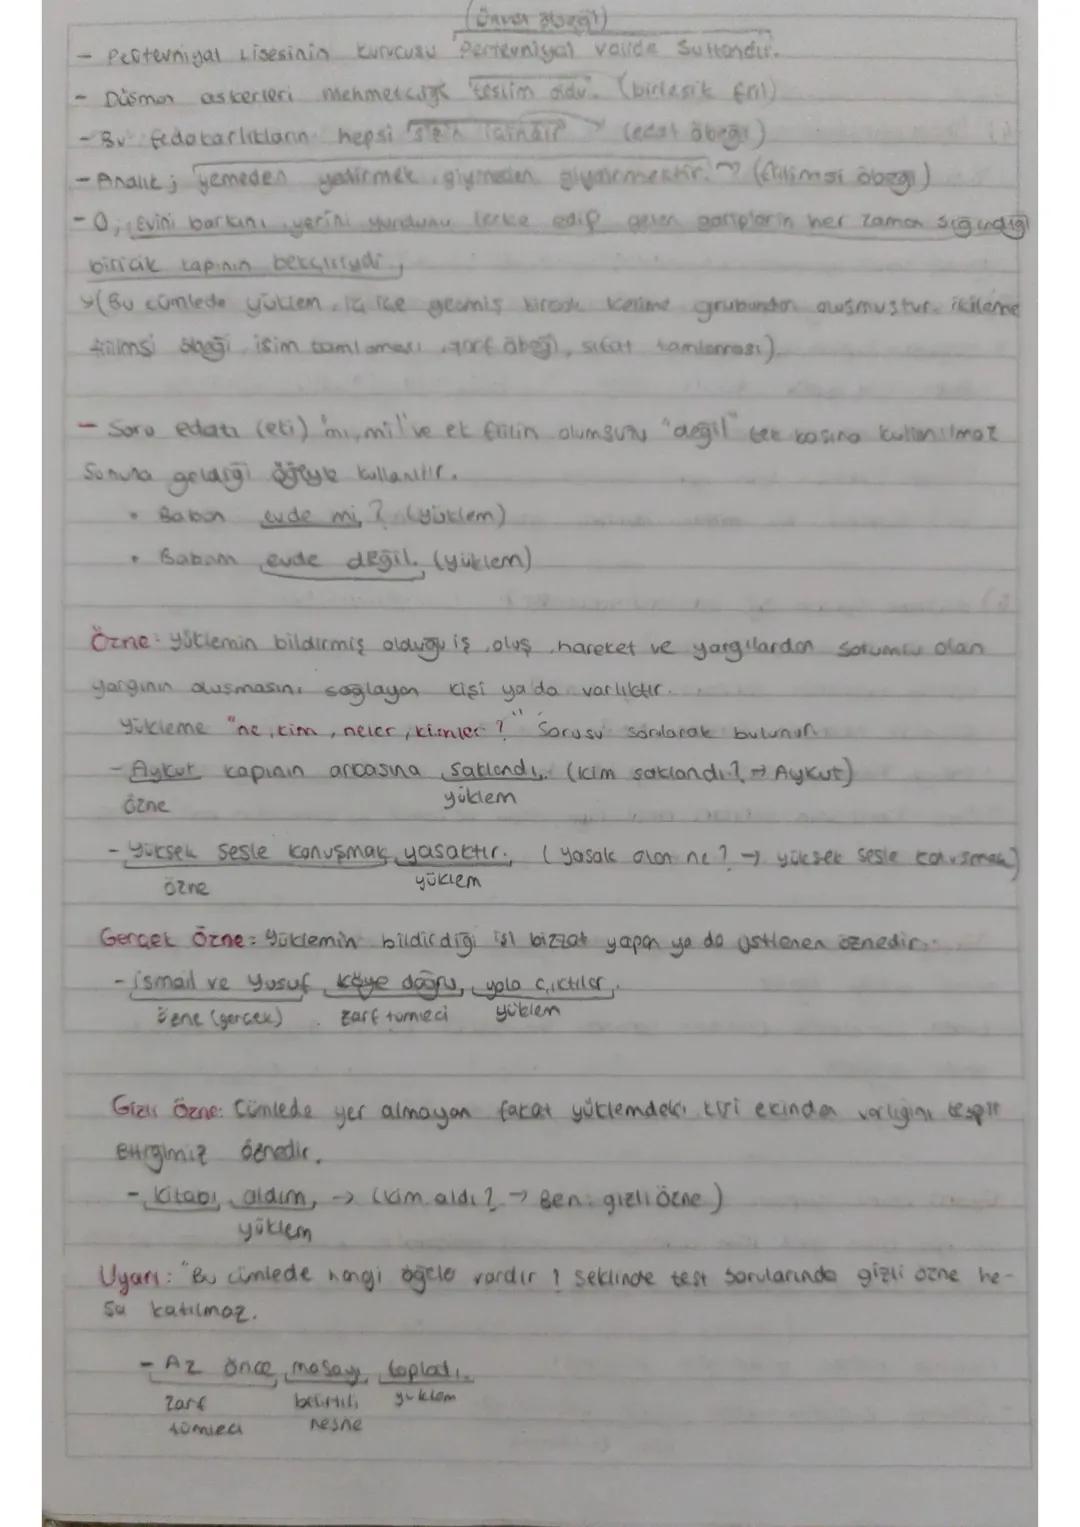 (Ünvan öbeği)
- Pertevniyal Lisesinin kurucusu Pertevniyal Valide Sultandır.
- Düşman askerleri Mehmetçiğe teslim oldu. (birleşik fiil)
- Bu fedakarlıkların hepsi sizin içindir (edat öbeği)
- Analık; yemeden yedirmek, giymeden giydirmektir. → (fiilimsi öbeği)
- O, evini barkını, yerini yurdunu terke edip gelen gariplerin her zaman sığındığı
biricik kapının bekçisiydi.
→(Bu cümlede yüklem, iç içe geçmiş birçok kelime grubundan oluşmuştur. ikileme
fiilimsi öbeği, isim tamlaması, zarf öbeği, sıfat tamlaması).
- Soru edatı (eki) "mı, mi" ve ek fiilin olumsuzu "değil" tek başına kullanılmaz
Sonuna geldiği öğeyle kullanılır.
• Baban evde mi? (yüklem)
• Babam evde değil. (yüklem)
Özne: yüklemin bildirmiş olduğu iş, oluş, hareket ve yargılardan sorumlu olan
yargının oluşmasını sağlayan kişi ya da varlıktır.
Yükleme "ne, kim, neler, kimler?" Sorusu sorularak bulunur.
- Aykut kapının arkasına saklandı. (kim saklandı? → Aykut)
özne yüklem
- Yüksek sesle konuşmak yasaktır. (yasak olan ne? → yüksek sesle konuşmak)
özne yüklem
Gerçek Özne: Yüklemin bildirdiği işi bizzat yapan ya da üstlenen öznedir.
- ismail ve Yusuf köye doğru yola çıktılar.
özne (gerçek) zarf tümleci yüklem
Gizli Özne: Cümlede yer almayan fakat yüklemdeki kişi ekinden varlığını tespit
Ettiğimiz öznedir.
- Kitabı aldım, → (kim aldı? → Ben: gizli özne)
yüklem
Uyarı: "Bu cümlede hangi öğeler vardır? şeklinde test sorularında gizli özne he-
sa katılmaz.
- Az önce masayı topladı.
zarf belirtili yüklem
tümleci nesne